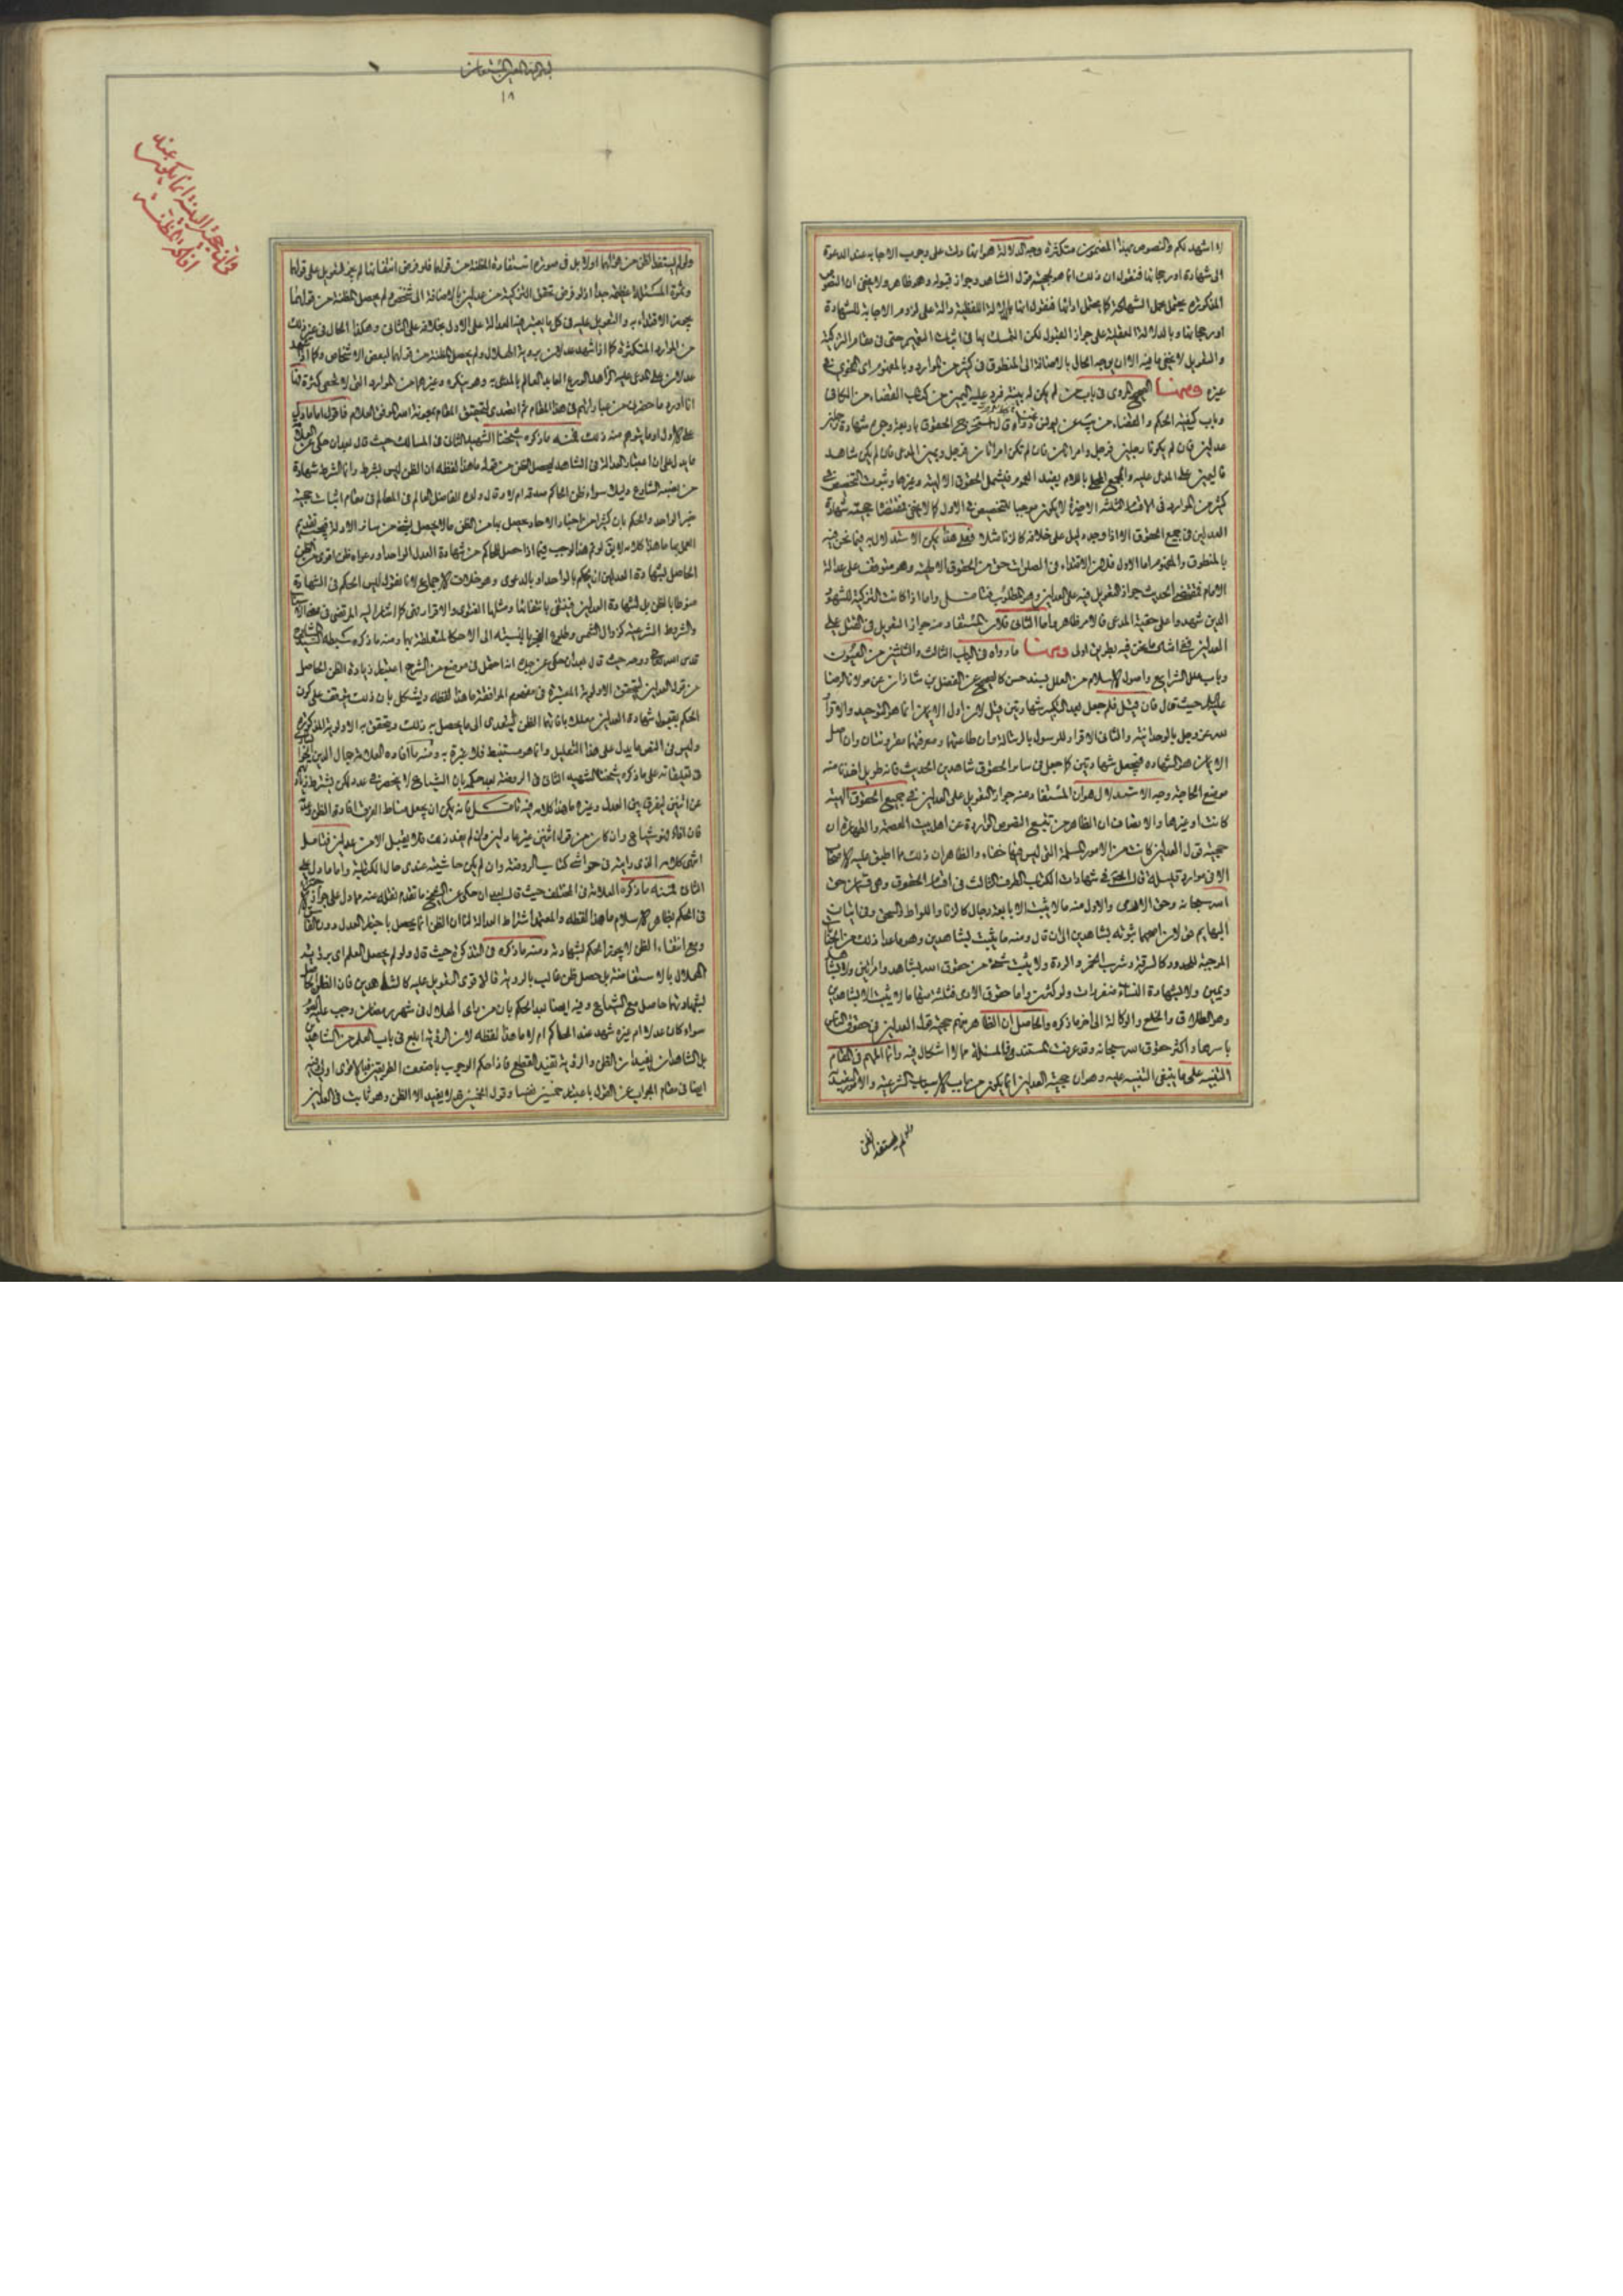 لا اشهد لكم والنصوص بهذا المضمون متكثرة وجه الدلالة هو انها دلت على وجوب الاجابة عند الدعوة
الى شهادة فنقول ان ذلك انما هو لحجية قول الشاهد وجواز قبوله وهو ظاهر ولا يخفى ان النصوص
المذكورة يحتمل تحمل الشهادة كما يحتمل ادائها فنقول انها بالدلالة اللفظية دالة على لزوم الاجابة للشهادة
وبالدلالة العقلية على جواز القبول لكن التمسك بها في اثبات التعميم حتى في مقام التزكية
والتعويل لا يخفى ما فيه الا ان يوجه الحال بالاضافة الى المنطوق في كثير من الموارد وبالمفهوم
غيره ومنها الصحيح المروي في باب من لم يكن له بينة فرد عليه اليمين من كتاب القضاء من الكافي
وباب كيفية الحكم والقضاء من يب عن يونس عمن رواه قال استخراج الحقوق باربعة وجوه شهادة رجلين
عدلين فان لم يكونا رجلين فرجل وامراتان فان لم تكن امراتان فرجل ويمين المدعي فان لم يكن شاهد
فاليمين على المدعى عليه والجمع المحلى باللام يفيد العموم فيشمل الحقوق الالهية وغيرها وثبوت التخصيص في
كثير من الموارد في الاقسام الثلثة الاخيرة لا يكون موجبا للتخصيص في الاول كما لا يخفى فمقتضاه حجية شهادة
العدلين في جميع الحقوق الا اذا وجد دليل على خلافه كالزنا مثلا فعلى هذا يمكن الاستدلال به فيما نحن فيه
بالمنطوق والمفهوم اما الاول فلان الاقتداء في الصلوات حق من الحقوق الالهية وهو متوقف على عدالة
الامام فمقتضى الحديث جواز التعويل فيه على العدلين وهو المطلوب فتامل واما اذا كانت التزكية للشهود
الذين شهدوا على حقية المدعي فالامر ظاهر واما الثاني فلان المستفاد منه جواز التعويل في القتل على
العدلين ففي اثبات ما نحن فيه بطريق اولى ومنها ما رواه في الباب الثالث والثلثين من العيون
وباب علل الشرايع واصول الاسلام من العلل بسند حسن كالصحيح عن الفضل بن شاذان عن مولانا الرضا
عليه السلام حيث قال فان قيل فلم جعل بعد التكبير شهادتين قيل لان اول الايمان انما هو التوحيد والاقرار
لله عز وجل بالوحدانية والثاني الاقرار للرسول بالرسالة وان طاعتهما ومعرفتهما مقرونتان وان اصل
الايمان هو الشهادة فجعل شهادتين كما جعل في ساير الحقوق شاهدين الحديث فانه طويل اخذنا منه
موضع الحاجة وجه الاستدلال هو ان المستفاد منه جواز التعويل على العدلين في جميع الحقوق الهية
كانت او غيرها والانصاف ان الظاهر من تتبع النصوص الواردة عن اهل بيت العصمة والطهارة ان
حجية قول العدلين كانت من الامور المسلمة التي ليس فيها خفاء والظاهر ان ذلك مما اطبق عليه الاصحاب
الا في موارد قليلة قال المحقق في شهادات الكتاب الطرف الثالث في اقسام الحقوق وهي قسمان حق
الله سبحانه وحق الادمي والاول منه ما لا يثبت الا باربعة رجال كالزنا واللواط والسحق وفي اتيان
البهايم قولان اصحهما ثبوته بشاهدين الى ان قال ومنه ما يثبت بشاهدين وهو ما عدا ذلك من الجنايات
الموجبة للحدود كالسرقة وشرب الخمر والردة ولا يثبت شئ من حقوق الله بشاهد وامراتين ولا بشاهد
ويمين ولا بشهادة النساء منفردات ولو كثرن واما حقوق الادمي فثلثة منها ما لا يثبت الا بشاهدين
وهو الطلاق والخلع والوكالة الى اخر ما ذكره والحاصل ان الظاهر منهم حجية قول العدلين في حقوق الناس
باسرها واكثر حقوق الله سبحانه وقد عرفت المستند في المسئلة مما لا اشكال فيه وانما المهم في المقام
التنبيه على ما ينبغي التنبيه عليه وهو ان حجية العدلين انما يكون من باب الاسباب الشرعية
ولو لم يستفد الظن
١٨
وان حجية البينة انما يكون عند
افادة المظنة
ولو لم يستفد الظن من قولهما اولا بل في صورة استفادة المظنة من قولهما فلو فرض انتفائها لم يجز التعويل على قولهما
وثمرة المسئلة عظيمة جدا اذ لو فرض تحقق التزكية من عدلين بالاضافة الى شخص ولم يحصل المظنة من قولهما
يجوز الاقتداء به والتعويل عليه في كل ما يعتبر فيه العدالة على الاول بخلافه على الثاني وهكذا الحال في غير ذلك
من الموارد المتكثرة كما اذا شهد عدلان برؤية الهلال ولم يحصل المظنة من قولهما لبعض الاشخاص وكما اذا شهد
عدلان على المدعى عليه الزاهد الورع العابد العالم بالمدعى به وهو ينكره وغيرهما من الموارد التي لا تحصى كثرة فها
انا اورد ما حضرني من عباراتهم في هذا المقام ثم اتصدى لتحقيق المقام بعون الله الملك العلام فاقول اما ما دل
على الاول او ما يتوهم منه ذلك فمنه ما ذكره شيخنا الشهيد الثاني في المسالك حيث قال بعد ان حكى عن العلامة
ما يدل على ان اعتبار العدالة في الشاهد ليحصل الظن من قوله ما هذا لفظه ان الظن ليس بشرط وانما الشرط شهادة
من نصبه الشارع دليلا سواء ظن الحاكم صدقه ام لا وقال ولده الفاضل العالم في المعالم في مقام اثبات حجية
خبر الواحد والحكم بان كثيرا من اخبار الاحاد يحصل بها من الظن ما لا يحصل بشئ من ساير الادلة فيجب تقديم
العمل بها ما هذا كلامه لا يق لو تم هذا لوجب فيما اذا حصل للحاكم من شهادة العدل الواحد او دعواه ظن اقوى من الظن
الحاصل بشهادة العدلين ان يحكم بالواحد او بالدعوى وهو خلاف الاجماع لانا نقول ليس الحكم في الشهادة
منوطا بالظن بل بشهادة العدلين فينتفي بانتفائها ومثلها الفتوى والاقرار فهي كما اشار اليه المرتضى في معنى الاسباب
والشروط الشرعية كزوال الشمس وطلوع الفجر بالنسبة الى الاحكام المتعلقة بها ومنه ما ذكره سبطه السيد
قدس الله روحه حيث قال بعد ان حكى عن جده
من قول العدلين لتحقق الاولوية المعتبرة في مفهوم الموافقة ما هذا لفظه ويشكل بان ذلك يتوقف على كون
الحكم بقبول شهادة العدلين معللا بافادتهما الظن ليتعدى الى ما يحصل به ذلك ويتحقق به الاولوية المذكورة
وليس في النص ما يدل على هذا التعليل وانما هو مستنبط فلا عبرة به ومنه ما افاده العلامة جمال الدين الخوانساري
في تعليقاته على ما ذكره شيخنا الشهيد الثاني في الروضة بعد حكمه بان الشياع لا ينحصر في عدد لكن يشترط زيادتهم
عن اثنين ليفرق بين العدل وغيره ما هذا كلامه فيه تامل فانه يمكن ان يجعل مناط الفرق افادة الظن وعدمه
فان افاد فهو شياع وان كان من قول اثنين غير عادلين وان لم يفد ذلك فلا يقبل الا من عدلين فتامل
انتهى كلامه الذي رايته في حواشي كتاب الروضة وان لم يكن حاشيته عندي حال الكتابة واما ما دل على
الثاني فمنه ما ذكره العلامة في المختلف حيث قال بعد ان حكى عن الشيخ ما تقدم نقله عنه مما دل على جواز الاكتفاء
في الحكم بظاهر الاسلام ما هذا لفظه والمعتمد اشتراط العدالة لنا ان الظن انما يحصل باخبار العدل دون الفاسق
ومع انتفاء الظن لا يجوز الحكم بشهادته ومنه ما ذكره في التذكرة حيث قال ولو لم يحصل العلم اي برؤية
الهلال بالاستفاضة بل حصل ظن غالب بالرؤية فالاقوى التعويل عليه كالشاهدين فان الظن الحاصل
بشهادتهما حاصل مع الشياع وفيه ايضا بعد الحكم بان من راى الهلال في شهر رمضان وجب عليه الصوم
سواء كان عدلا ام غيره شهد عند الحاكم ام لا ما هذا لفظه لان الرؤية ابلغ في باب العلم من الشاهدين
بل الشاهدان يفيدان الظن والرؤية تفيد القطع فاذا حكم الوجوب باضعف الطريقين فبالاقوى اولى وفيه
ايضا في مقام الجواب عن القول باعتبار خمسين نفسا وقول الخمسين قد لا يفيد الا الظن وهو ثابت في العدلين